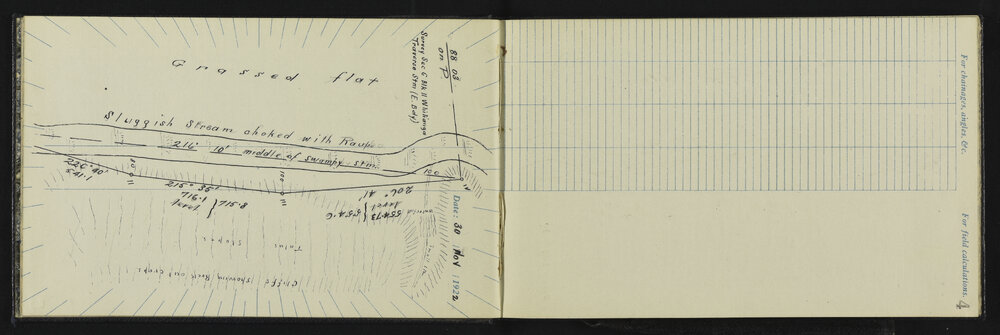 Grassed flat
88 03
on P
Survey Sec 6 Blk II Whikanga
Traverse Stm (E. Bdy)
Sluggish Stream choked with Raupo
216° 10' middle of swampy stm
226° 40'
541.1
80
III
215° 35'
716.1
level
} 715.8
100
100
IV
206° 41'
554.73
level
} 554.6
Date: 30 Nov 1922
Talus
Slopes
Cliffs showing Rock out crops
For chainages, angles, &c.
For field calculations.
4